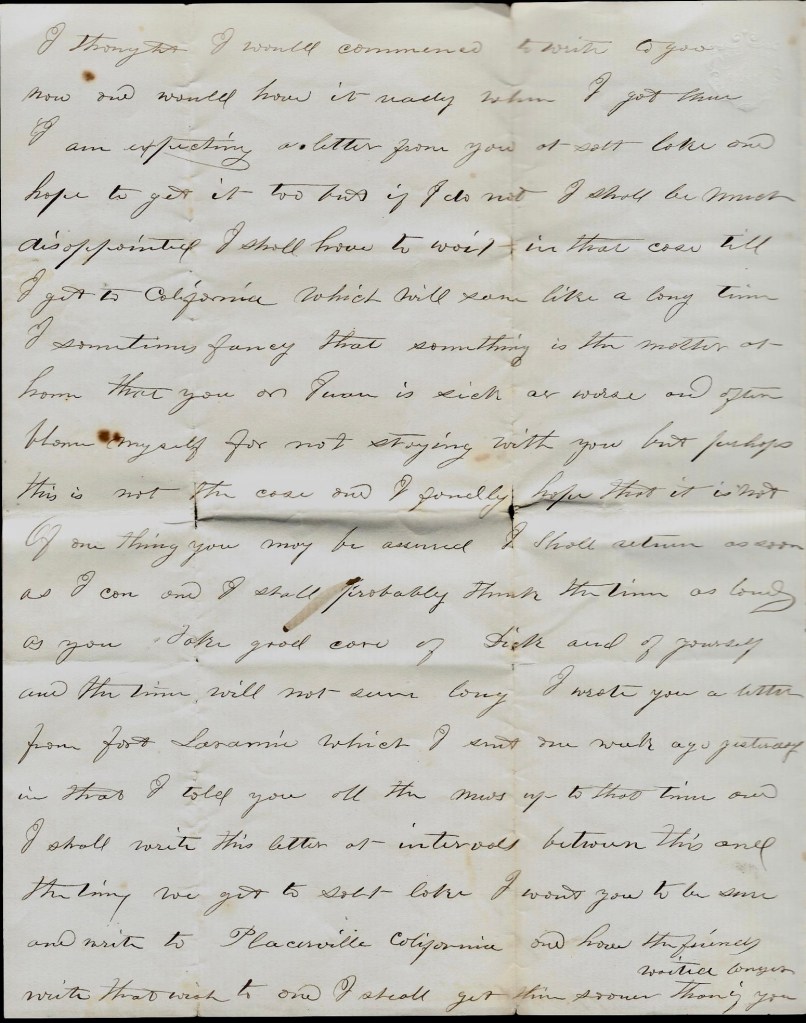 I thought I would commence to write to you
now and would have it ready when I got there
I am expecting a letter from you at salt lake and
hope to get it too but if I do not I shall be much
disappointed I shall have to wait in that case till
I get to California which will seem like a long time
I sometimes fancy that something is the matter at
home that you or is sick or worse and often
blame myself for not staying with you but perhaps
this is not the case and I fondly hope that it is not
Of one thing you may be assured I shall return as soon
as I can and I shall probably think the time as long
as you Take good care of Dick and of yourself
and the time will not seem long I wrote you a letter
from fort Laramie which I sent one week ago yesterday
in that I told you all the news up to that time and
I shall write this letter at intervals between this and
the time we get to salt lake I want you to be sure
and write to Placerville California and have the friends
waited longer
write that wish to and I shall get them sooner than if you